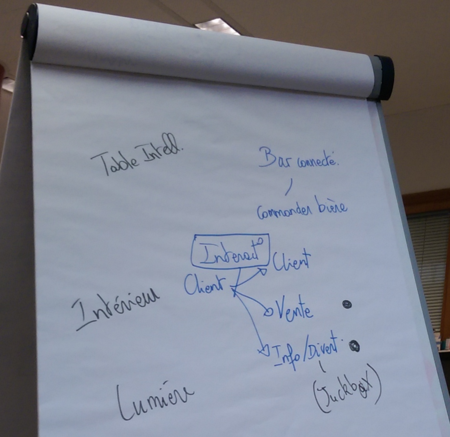 Table Intell.
Bar connecté.
Commander bière
Interact°
Client
Client
Intérieur
Vente
Info/Divert.
(Juckbox)
Lumière